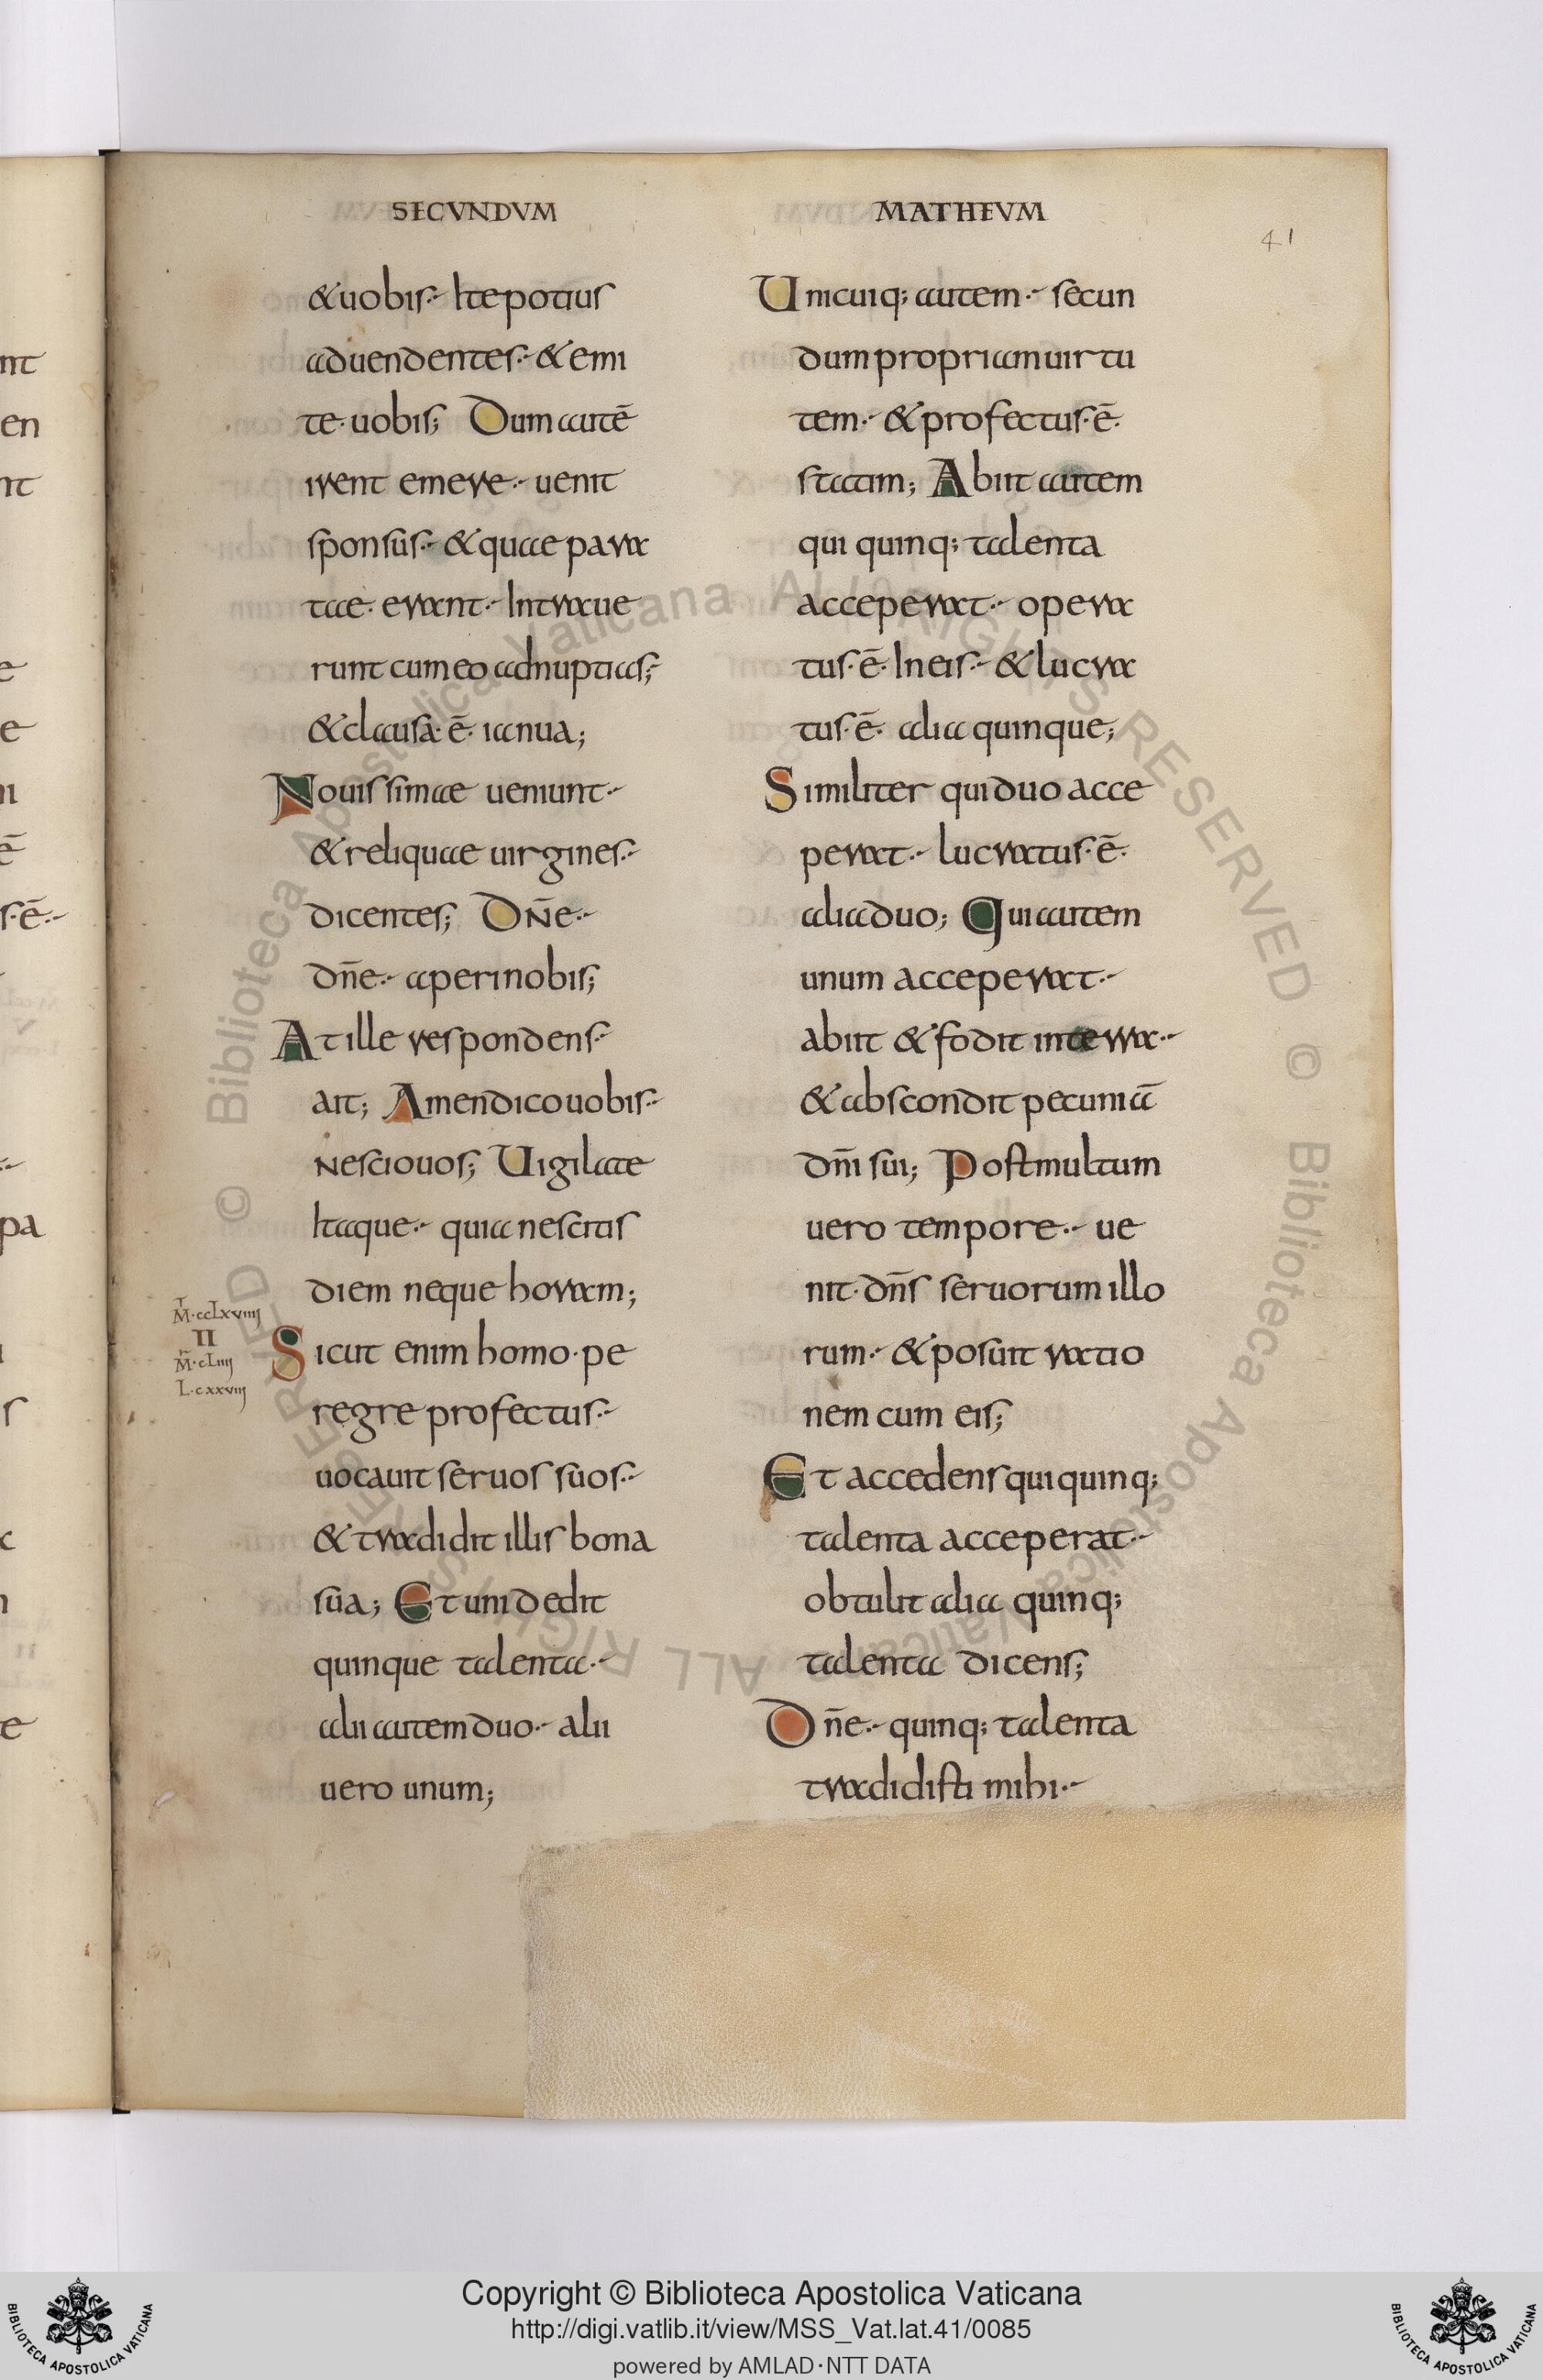 SECVNDVM
& uobis·- Ite potius
ad uendentes·- & emi
te· uobis; Dum autē
irent emere·- uenit
sponsus·- & quae para
tae· erant·- Intraue
runt cum eo ad nuptias;
& clausa· ē· ianua;
Nouissimae ueniunt·-
& reliquae uirgines·-
dicentes; Dn̄e·-
dn̄e·- aperi nobis;
At ille respondens·-
ait; Amen dico uobis·-
nescio uos; Uigilate
Itaque·- quia nescitis
diem neque horam;
M̄·ccLxviiij
II
M̄·cLiiij
L·cxxviij
Sicut enim homo· pe
regre profectus·-
uocauit seruos suos·-
& tradidit illis bona
sua; Et uni dedit
quinque talenta·-
alii autem duo·- alii
uero unum;
MATHEVM
41
Unicuiq; autem·- secun
dum propriam uirtu
tem·- & profectus· ē·
statim; Abiit autem
qui quinq; talenta
acceperat·- opera
tus· ē· In eis·- & lucra
tus· ē· alia quinque;
Similiter qui duo acce
perat·- lucratus· ē·
alia duo; Qui autem
unum acceperat·-
abiit & fodit in terra·-
& abscondit pecuniā
dn̄i sui; Post multum
uero tempore·- ue
nit· dn̄s seruorum illo
rum·- & posuit ratio
nem cum eis;
Et accedens qui quinq;
talenta acceperat·-
obtulit alia quinq;
talenta dicens;
Dn̄e·- quinq; talenta
tradidisti mihi·-
© Biblioteca Apostolica Vaticana ALL RIGHTS RESERVED © Biblioteca Apostolica Vaticana ALL RIGHTS RESERVED
Copyright © Biblioteca Apostolica Vaticana
http://digi.vatlib.it/view/MSS_Vat.lat.41/0085
powered by AMLAD·NTT DATA
BIBLIOTECA APOSTOLICA VATICANA
BIBLIOTECA APOSTOLICA VATICANA